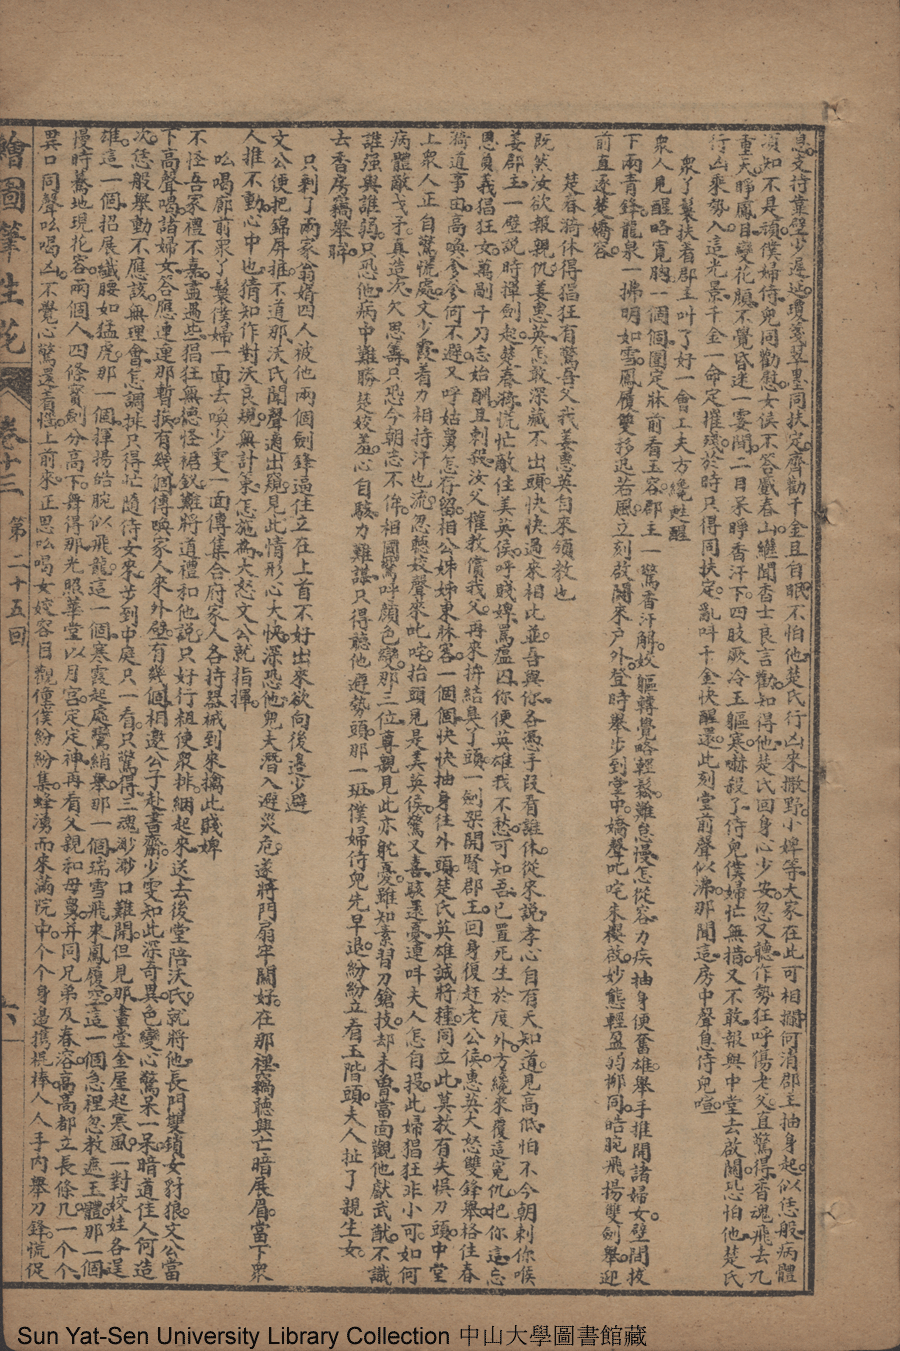 息支持棄躄少遲延瓊箋翠墨同扶定齊勸千金且自眠不怕他楚氏行凶來撒野小婢等大家在此可相攔何消郡主抽身起似恁般病體
須知不是頑僕婦侍兒同勸慰女侯不答蹙春山纔聞香士良言勸知得他楚氏回身心少安忽又聽作勢狂呼傷老父直驚得香魂飛去九
重天睜鳳目變花顏不覺昏迷一霎間二目呆睜香汗下四肢厥冷玉軀寒嚇殺了侍兒僕婦忙無措又不敢報與中堂去啟關恐怕他楚氏
行凶乘勢入這光景千金一命定摧殘於時只得同扶定亂叫千金快醒還此刻堂前聲似沸那聞這房中聲息侍兒喧
眾了鬟扶着郡主叫了好一會工夫方纔甦醒
眾人見醒略寬胸一個個圍定牀前看玉容郡主一驚香汗解姣軀轉覺略輕鬆難怠慢怎從容力疾抽身便奮雄舉手推開諸婦女壁間拔
下兩青鋒龍泉一拂明如雪鳳履雙移迅若風立刻啟關來戶外登時舉步到堂中嬌聲叱咤朱櫻啟妙態輕盈弱柳同皓腕飛揚雙劍舉迎
前直逐楚嬌容
楚春漪休得猖狂有驚吾父我姜惠英自來領教也
既然汝欲報親仇姜惠英怎敢深藏不出頭快快過來相比並吾與你各憑手段看誰休從來說孝心自有天知道見高低怕不今朝刺你喉
姜郡主一壁說時揮劍起楚春漪慌忙敵住美英侯呼賤婢罵瘟囚你便英雄我不愁可知吾已置死生於度外方纔來覆這冤仇把你這忘
恩負義猖狂女萬剮千刀志始酬且刺殺汝父權教償我父再來拚結臭丁頭一劍架開賢郡主回身復赶老公侯惠英大怒雙鋒舉格住春
漪道事由高喚爹爹何不避又呼姑舅怎存留相公姊姊東牀客一個個快快抽身往外頭楚氏英雄誠將種同立此莫教有失悞刀頭中堂
上衆人正自驚慌處文少霞着力相持汗也流忽聽姣聲來叱咤抬頭見是美英侯驚又喜駭還憂連叫夫人怎自投此婦猖狂非小可如何
病體敵戈矛真造次欠思籌只恐今朝志不侔相國驚呼顏色變那三位尊親見此亦躭憂雖知素習刀鎗技却未曾當面觀他獻武猷不識
誰强與誰弱只恐他病中難勝楚姣羞心自駭力難謀只得聽他避勢頭那一班僕婦侍兒先早退紛紛立看玉階頭夫人扯了親生女
去香房竊舉眸
只剩了兩家翁婿四人被他兩個劍鋒逼住立在上首不好出來欲向後邊少避
文公便把錦屏推不道那沃氏聞聲適出窺見此情形心大快深恐他兒夫潛入避災危遂將門扇牢關好在那裡竊聽興亡暗展眉當下眾
人推不動心中也猜知作對沃良規無計策怎施為大怒文公就指揮
吆喝廊前眾了鬟僕婦一面去喚少雯一面傳集合府家人各持器械到來擒此賤婢
不怪吾家禮不嘉盡遇些猖狂無德怪裙釵難將道禮和他說只好行粗使衆排綑起來送去後堂陪沃氏就將他長門雙鎖女豺狼文公當
下高聲喝諸婦女答應連連那暫挨有幾個傳喚家人來外壁有幾個相邀公子赴書齋少雯知此深奇異色變心驚呆一呆暗道佳人何造
次恁般舉動不應該無理會怎調排只得忙隨侍女來步到中庭只一看只驚得三魂渺渺口難開但見那畫堂金屋起寒風一對姣娃各逞
雄這一個招展纖腰如猛虎那一個揮揚皓腕似飛龍這一個寒霞起處鸞綃舉那一個瑞雪飛來鳳履空這一個急裡忽教遮玉體那一個
慢時驀地現花容兩個人四條寶劍分高下舞得那光照華堂似月宮定定神再看父親和母舅并同兄弟及春溶高高都立長條几一个个
異口同聲吆喝凶不覺心驚還着怪上前來正思吆喝女姣容目觀僮僕紛紛集蜂湧而來滿院中个个身邊携棍棒人人手內舉刀鋒慌促
繪圖筆生花 卷十三 第二十五回 六
Sun Yat-Sen University Library Collection 中山大學圖書館藏